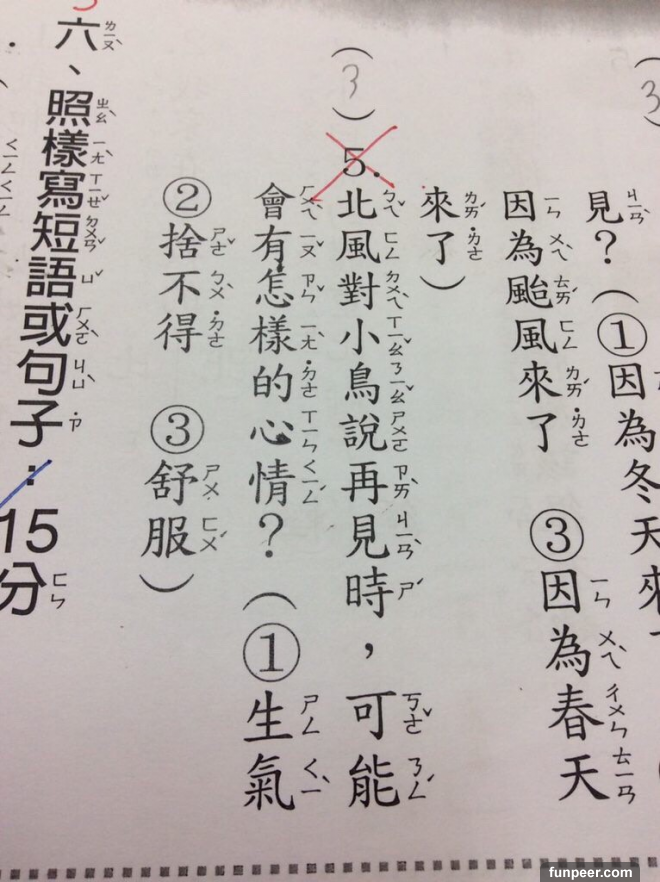 (3
見？（①因為冬天來
因為颱風來了 ③因為春天
來了）
（3）5.北風對小鳥說再見時，可能
會有怎樣的心情？（①生氣
②捨不得 ③舒服）
六、照樣寫短語或句子：15分
funpeer.com